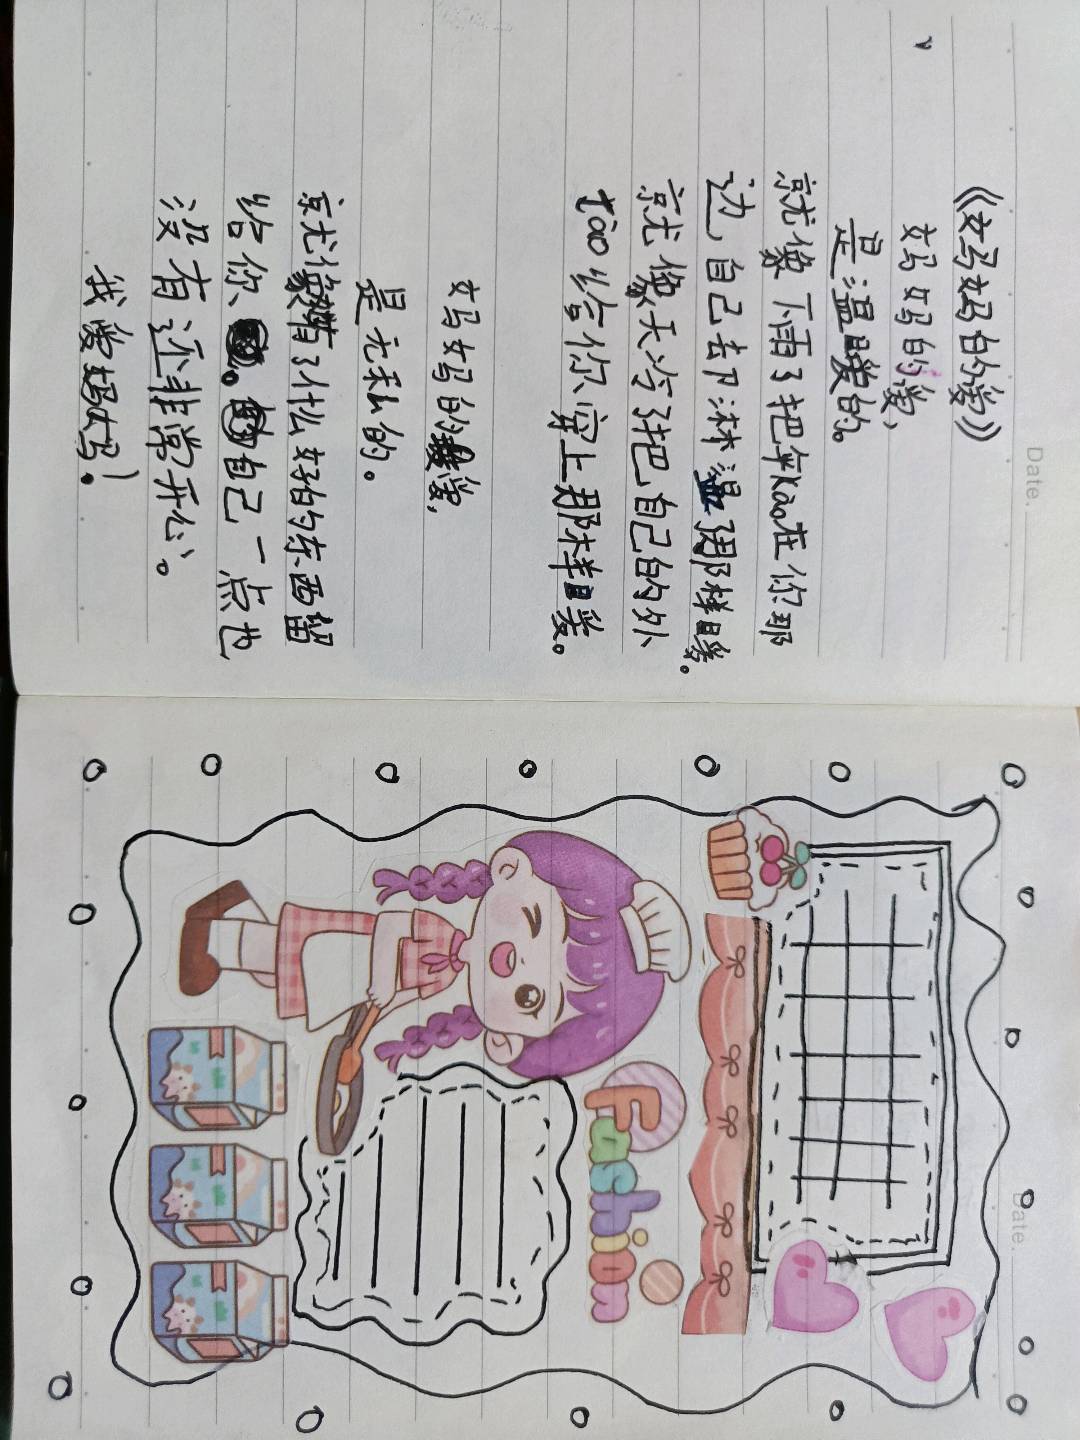 《妈妈的爱》
妈妈的爱,
是温暖的。
就像下雨了把伞kào在你那
边,自己去阝淋湿了那样暖。
就像天冷了把自己的外
tào给你穿上那样暖。
妈妈的爱,
是无私的。
就像有了什么好的东西留
给你、自己一点也
没有还非常开心。
我爱妈妈!
Date.
Date.
Fashion